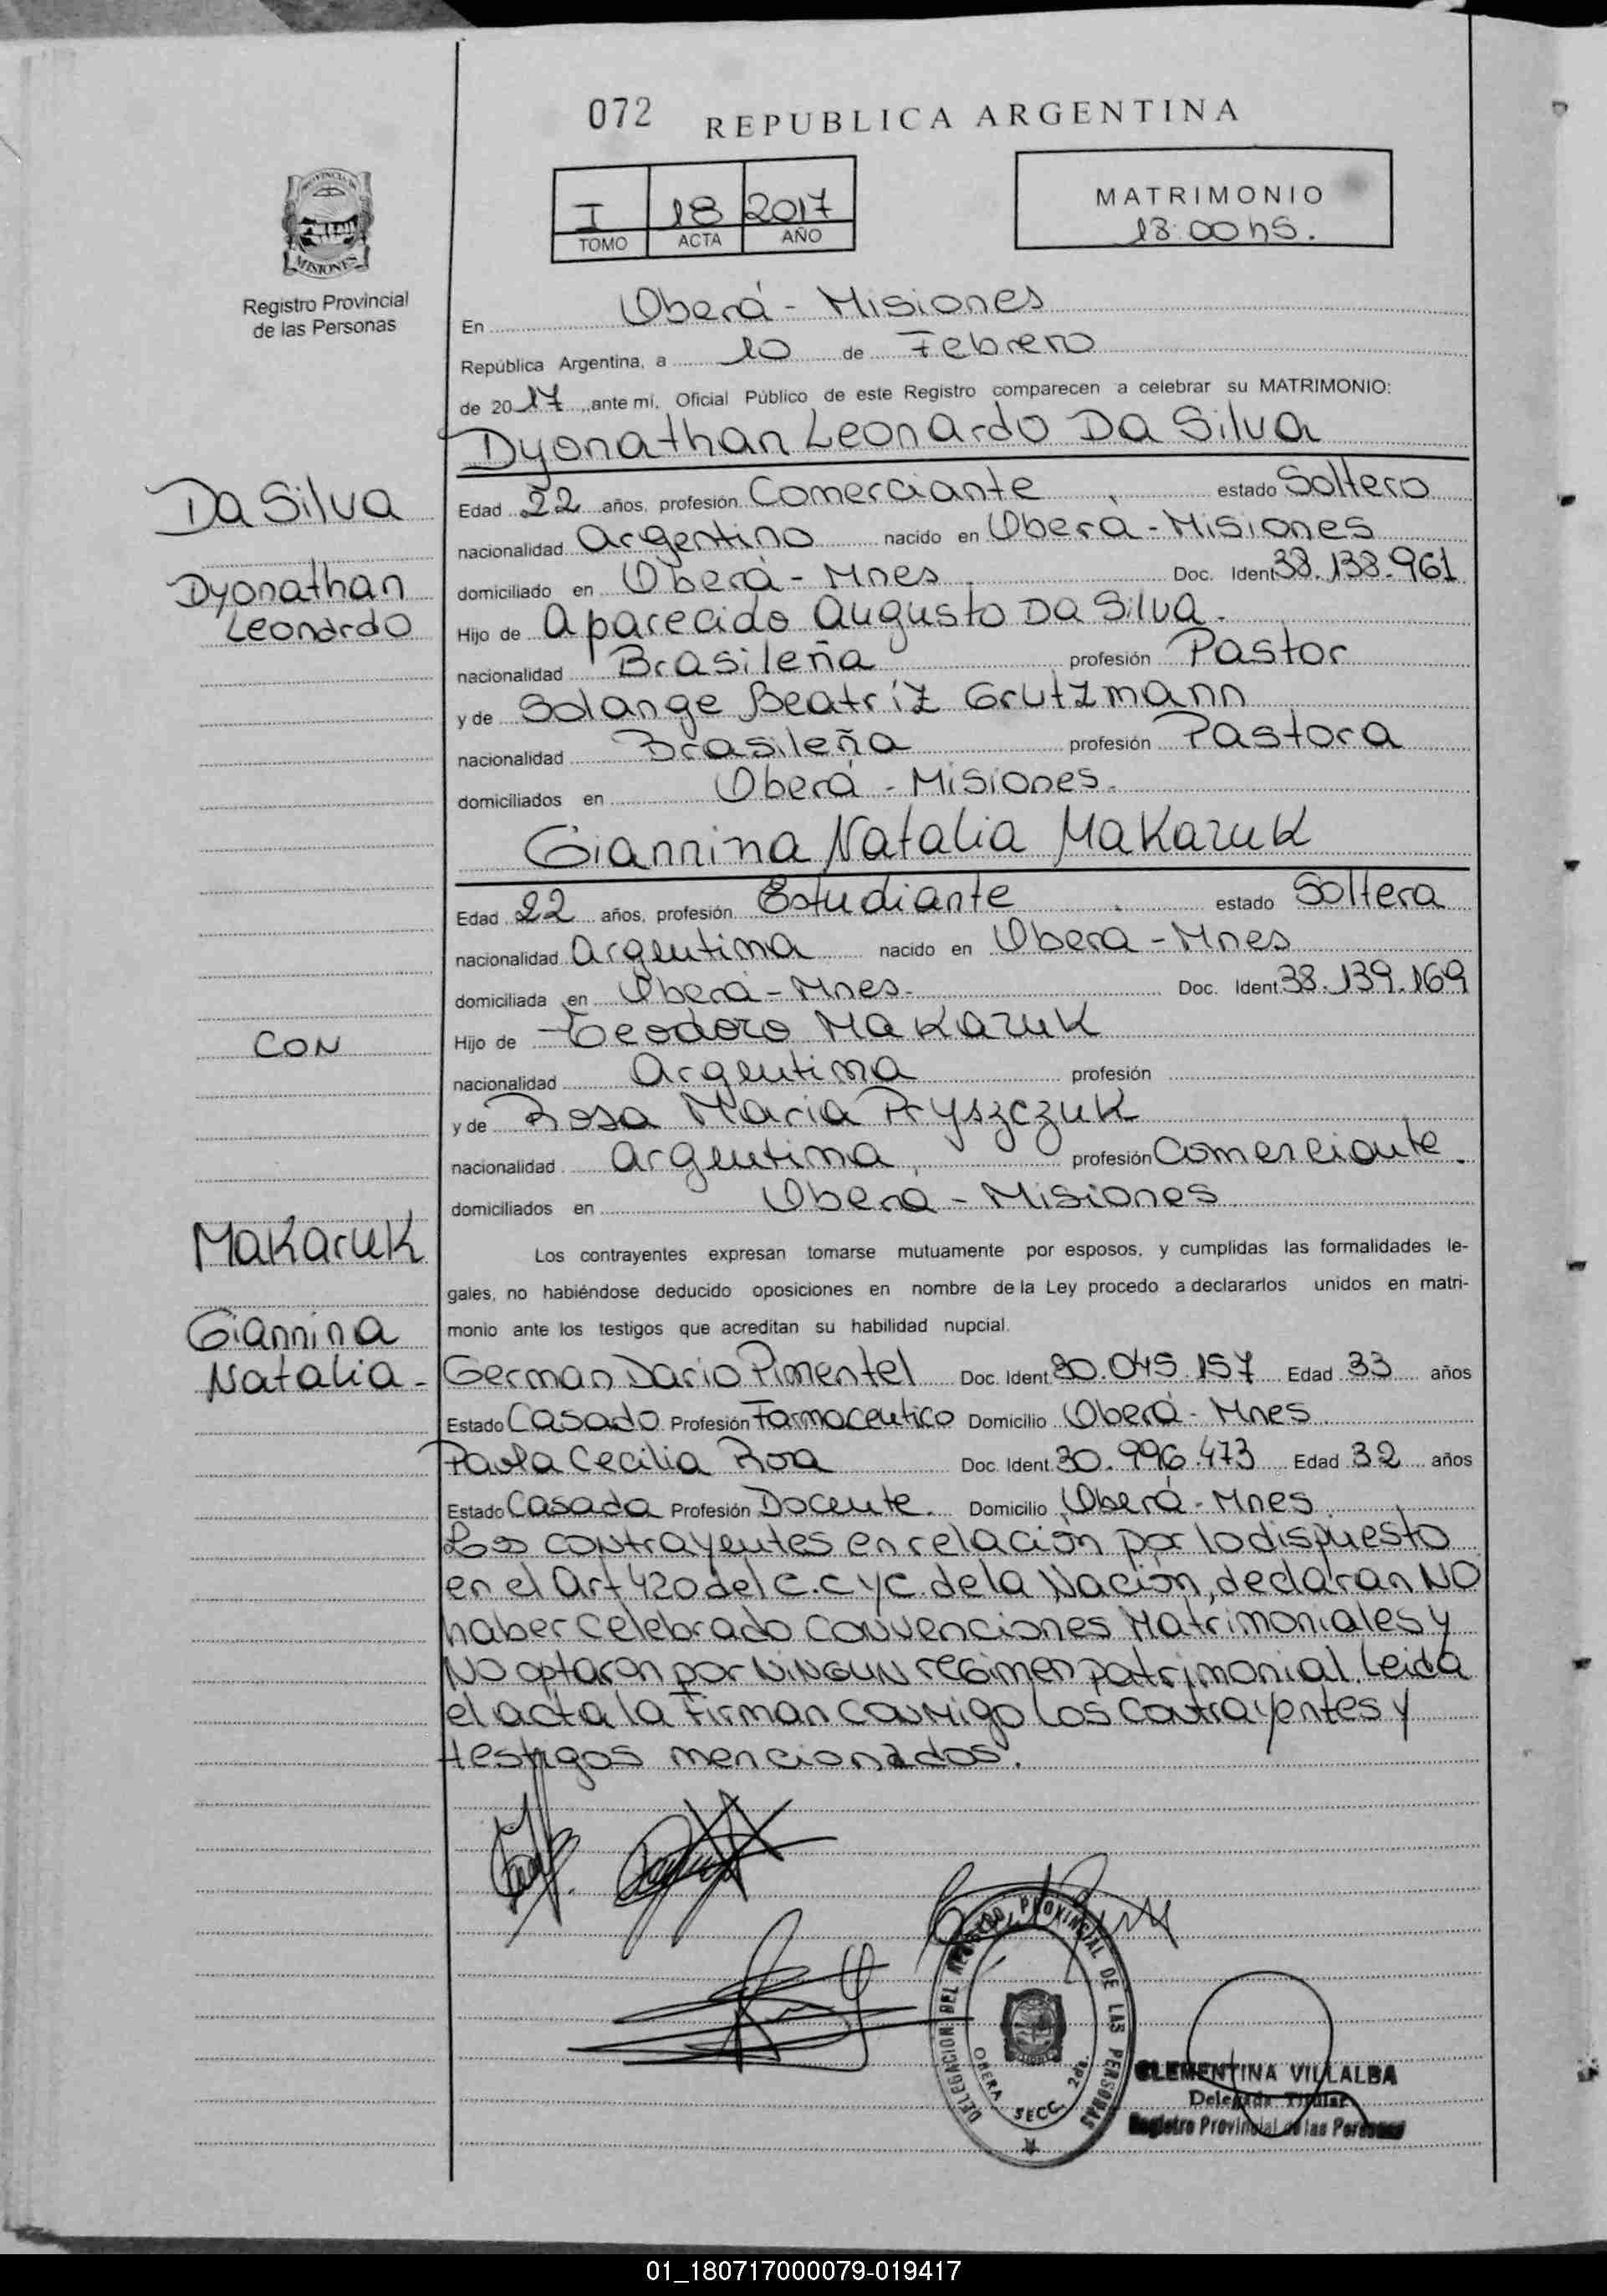 072 REPUBLICA ARGENTINA
I 18 2017
TOMO ACTA AÑO
MATRIMONIO
18:00 hS.
PROVINCIA DE
MISIONES
Registro Provincial
de las Personas
En Oberá - Misiones
República Argentina, a 10 de Febrero
de 2017, ante mí, Oficial Público de este Registro comparecen a celebrar su MATRIMONIO:
Dyonathan Leonardo Da Silva
Da Silva
Dyonathan
Leonardo
Edad 22 años, profesión Comerciante estado Soltero
nacionalidad Argentino nacido en Oberá - Misiones
domiciliado en Oberá - Mnes Doc. Ident 38.138.961
Hijo de Aparecido Augusto Da Silva.
nacionalidad Brasileña profesión Pastor
y de Solange Beatríz Grutzmann
nacionalidad Brasileña profesión Pastora
domiciliados en Oberá - Misiones.
Giannina Natalia Makaruk
Edad 22 años, profesión Estudiante estado Soltera
nacionalidad Argentina nacido en Obera - Mnes
domiciliada en Oberá - Mnes. Doc. Ident 38.139.169
CON
Hijo de Teodoro Makaruk
nacionalidad Argentina profesión
y de Rosa Maria Pryszczuk
nacionalidad Argentina, profesión Comerciante.
domiciliados en Oberá - Misiones
Makaruk
Giannina
Natalia -
Los contrayentes expresan tomarse mutuamente por esposos, y cumplidas las formalidades le-
gales, no habiéndose deducido oposiciones en nombre de la Ley procedo a declararlos unidos en matri-
monio ante los testigos que acreditan su habilidad nupcial.
German Dario Pimentel Doc. Ident 30.045.157 Edad 33 años
Estado Casado Profesión Farmaceutico Domicilio Oberá - Mnes
Paola Cecilia Roa Doc. Ident. 30.996.473 Edad 32 años
Estado Casada Profesión Docente. Domicilio Oberá - Mnes
Los contrayentes en relación por lo dispuesto
en el Art 420 del C.C y C. de la Nación, declaran NO
haber celebrado convenciones Matrimoniales y
No optaron por NINGUN regimen patrimonial. Leida
el acta la Firman conmigo los contrayentes y
testigos mencionados.
DELEGACION DEL REGISTRO PROVINCIAL DE LAS PERSONAS
OBERA SECC. 2da.
CLEMENTINA VILLALBA
Delegada Titular
Registro Provincial de las Personas
01_180717000079-019417